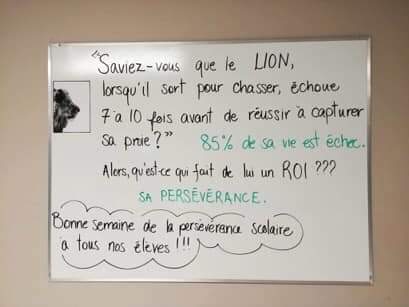 "Saviez-vous que le LION,
lorsqu'il sort pour chasser, échoue
7 à 10 fois avant de réussir à capturer
sa proie?" 85% de sa vie est échec.
Alors, qu'est-ce qui fait de lui un ROI ???
SA PERSÉVÉRANCE.
Bonne semaine de la persévérance scolaire
à tous nos élèves !!!